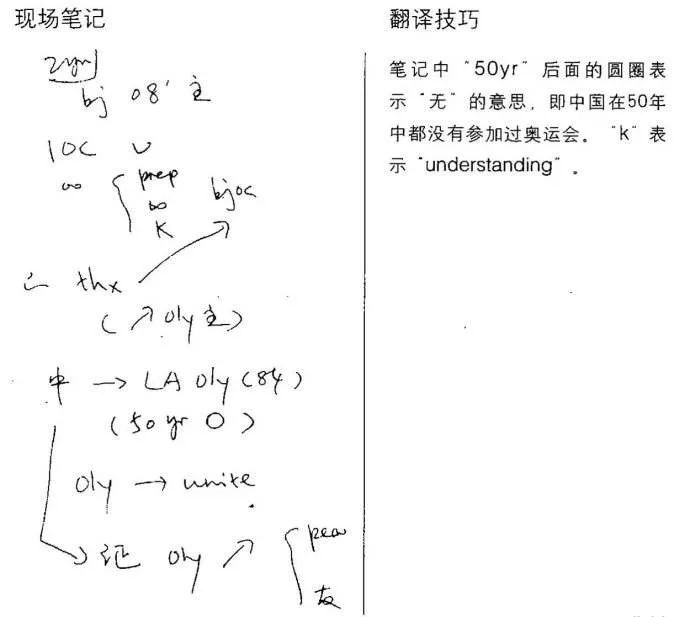 现场笔记
2yr
bj 08' 主
IOC
∞ prep
∞ bjoc
K
thx
(↗ oly 主)
中 → LA Oly (84)
(50 yr O)
Oly → unite
→ 证 Oly ↗
友
翻译技巧
笔记中“50yr”后面的圆圈表
示“无”的意思，即中国在50年
中都没有参加过奥运会。“k”表
示“understanding”。